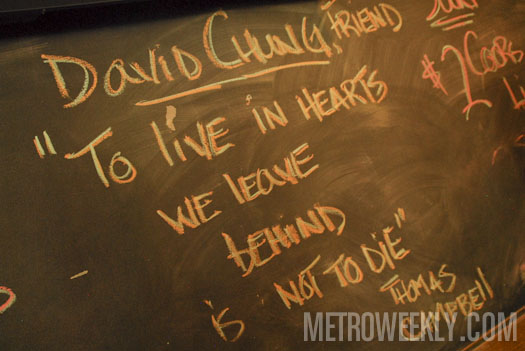 DAVID CHUNG, FRIEND
"TO LIVE IN HEARTS
WE LEAVE
BEHIND
IS NOT TO DIE"
THOMAS
CAMPBELL
$2 COORS
METROWEEKLY.COM®